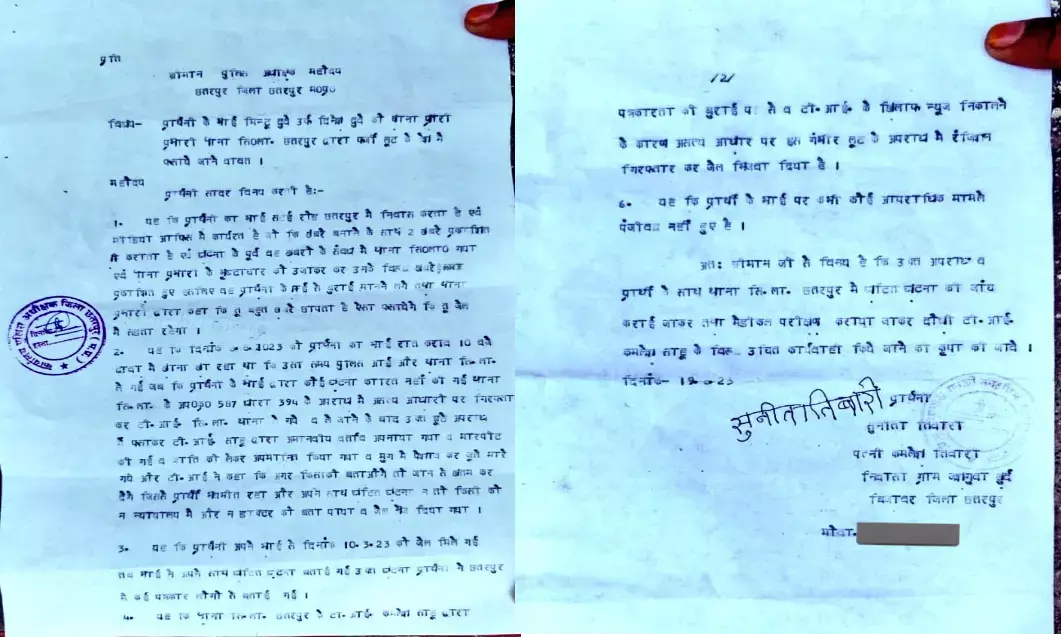 प्रति
श्रीमान पुलिस अधीक्षक महोदय
छतरपुर जिला छतरपुर म०प्र०
विषय- प्रार्थिनी के भाई मिन्टू दुबे उर्फ दिनेश दुबे को थाना प्रभारी
छतरपुर द्वारा फर्जी लूट के केस मे
फसाये जाने बावत ।
महोदय
प्रार्थिनी सादर विनय करती है:-
1. यह कि प्रार्थिनी का भाई सटई रोड छतरपुर मे निवास करता है एवं
मीडिया आफिस मे कार्यरत है जो कि खबरे बनाने के साथ 2 खबरे प्रकाशित
कराता है एवं घटना के पूर्व वह खबरो के संबंध मे थाना गया
एवं थाना प्रभारी के को उजागर कर उनके
प्रकाशित हुए वह प्रार्थिनी के भाई से बुराई मानने लगे तथा थाना
प्रभारी द्वारा कहा कि तू बहुत खबरे छापता है ऐसा फसायेगे कि तू जेल
मे सडता रहेगा ।
2. यह कि दिनांक 2023 को प्रार्थिनी का भाई रात करीब 10 बजे
ढाबा मे खाना खा रहा था कि उसी समय पुलिस आई और थाना सि.ला.
ले गई जब कि प्रार्थिनी के भाई द्वारा कोई घटना कारित नही की गई थाना
सि.ला. के 587 धारा 394 के अपराध मे असत्य आधारो पर गिरफ्तार
कर टी.आई. सि.ला. थाना ले गये व ले जाने के बाद उक्त झूठे अपराध
मे फसाकर टी.आई. साहू द्वारा अमानवीय बर्ताव अपनाया गया व मारपीट
की गई व जाति को लेकर अपमानित किया गया व मुंह मे पेशाब कर जूते मारे
गये और टी.आई ने कहा कि अगर किसीको बताओगे तो जान से खतम कर
देगे जिससे प्रार्थी भयभीत रहा और अपने साथ घटित घटना न तो किसी को
न न्यायालय मे और न डाक्टर को बता पाया व जेल भेज दिया गया ।
3. यह कि प्रार्थिनी अपने भाई से दिनांक 10-3-23 को जेल मिलने गई
तब भाई ने अपने साथ घटित घटना बताई गई उक्त घटना प्रार्थिनी ने छतरपुर
मे कई पत्रकार लोगो से बताई गई ।
4. यह कि थाना सि.ला. छतरपुर के टी.आई. कमलेश साहू द्वारा
कार्यालय पुलिस अधीक्षक जिला छतरपुर (म.प्र.)
/2/
पत्रकारता की बुराई पर से व टी.आई. के खिलाफ न्यूज निकालने
के कारण असत्य आधार पर इस गंभीर लूट के अपराध मे रंजिशन
गिरफ्तार कर जेल भिजवा दिया है ।
6. यह कि प्रार्थी के भाई पर कभी कोई आपराधिक मामले
पंजीबद्ध नही हुए है ।
अत: श्रीमान जी से विनय है कि उक्त अपराध व
प्रार्थी के साथ थाना सि.ला. छतरपुर मे घटित घटना की जाँच
कराई जाकर तथा मेडीकल परीक्षण कराया जाकर दोषी टी.आई.
कमलेश साहू के विरूद्ध उचित कार्यवाही किये जाने की कृपा की जावे ।
दिनांक- 23
सुनीता तिवारी
प्रार्थिनी
सुनीता तिवारी
पत्नी कमलेश तिवारी
निवासी ग्राम
बिजावर जिला छतरपुर
मोबा.